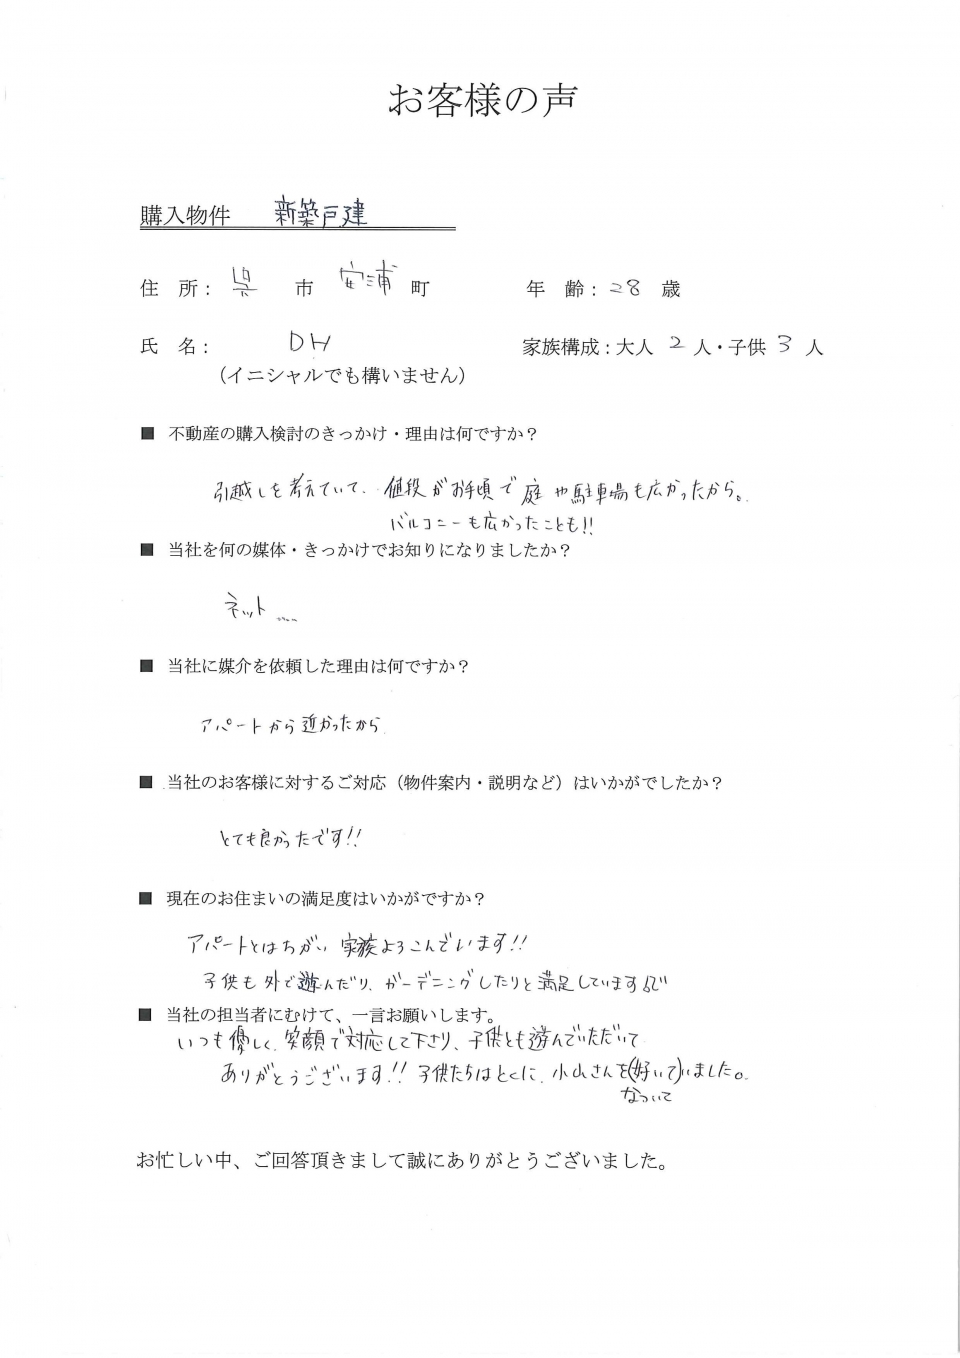 お客様の声
購入物件 新築戸建
住 所: 呉 市 安浦 町 年 齢: 28 歳
氏 名: DH 家族構成:大人 2 人・子供 3 人
(イニシャルでも構いません)
■ 不動産の購入検討のきっかけ・理由は何ですか?
引越しを考えていて、値段がお手頃で庭や駐車場も広かったから。
バルコニーも広かったことも!!
■ 当社を何の媒体・きっかけでお知りになりましたか?
ネット....
■ 当社に媒介を依頼した理由は何ですか?
アパートから近かったから
■ 当社のお客様に対するご対応(物件案内・説明など)はいかがでしたか?
とても良かったです!!
■ 現在のお住まいの満足度はいかがですか?
アパートとはちがい 家族よろこんでいます!!
子供も外で遊んだり、ガーデニングしたりと満足しています
■ 当社の担当者にむけて、一言お願いします。
いつも優しく、笑顔で対応して下さり、子供とも遊んでいただいて
ありがとうございます!! 子供たちはとくに、小山さんを(好いて)いました。
なついて
お忙しい中、ご回答頂きまして誠にありがとうございました。